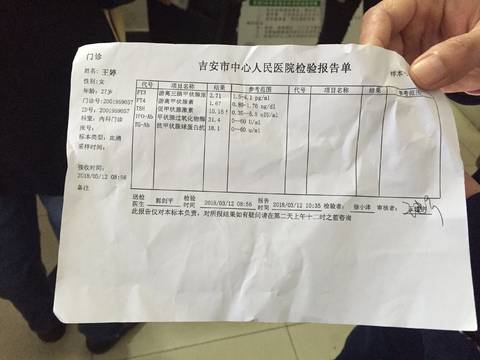 门诊
吉安市中心人民医院检验报告单
样本
姓名:王婷
性别:女
年龄:27岁
门诊号:2001969057
ID号:2001969057
科室:内科门诊
床号:
标本类型:血清
采样时间:
接收时间:
2018/03/12 08:56
备注
代号 项目 结果 参考范围 代号 项目 结果 参考范围
FT3 游离三碘甲状腺原 2.71 1.5-4.1 pg/ml
FT4 游离甲状腺素 1.67 0.80-1.76 ng/dl
TSH 促甲状腺激素 10.15↑ 0.35-5.5 uIU/ml
TPO-Ab 甲状腺过氧化物酶 31.4 0--60 U/ml
TG-Ab 抗甲状腺球蛋白抗 18.1 0--60 u/ml
送检医生 郭剑平 检验时间 2018/03/12 08:56 报告时间 2018/03/12 10:35 检验者: 徐小沣 审核者:
此报告仅对本标本负责,对所报结果如有疑问请在第二天上午十二时之前咨询